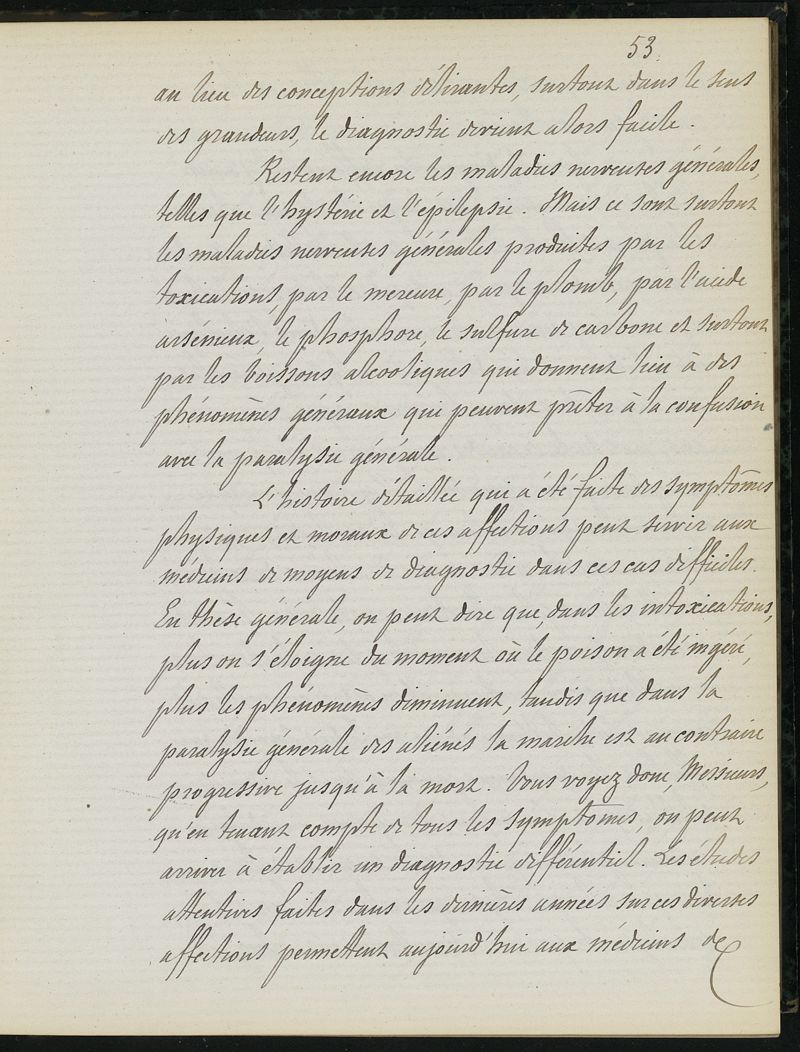 53.
au lieu des conceptions délirantes, surtout dans le sens
des grandeurs, le diagnostic devient alors facile.
Restent encore les maladies nerveuses générales,
telles que l'hystérie et l'épilepsie. Mais ce sont surtout
les maladies nerveuses générales produites par les
toxications, par le mercure, par le plomb, par l'acide
arsénieux, le phosphore, le sulfure de carbone et surtout
par les boissons alcooliques qui donnent lieu à des
phénomènes généraux qui peuvent prêter à la confusion
avec la paralysie générale.
L'histoire détaillée qui a été faite des symptômes
physiques et moraux de ces affections peut servir aux
médecins de moyens de diagnostic dans ces cas difficiles.
En thèse générale, on peut dire que, dans les intoxications,
plus on s'éloigne du moment où le poison a été ingéré,
plus les phénomènes diminuent, tandis que dans la
paralysie générale des aliénés la marche est au contraire
progressive jusqu'à la mort. Vous voyez donc, Messieurs,
qu'en tenant compte de tous les symptômes, on peut
arriver à établir un diagnostic différentiel. Les études
attentives faites dans les dernières années sur ces diverses
affections permettent aujourd'hui aux médecins de